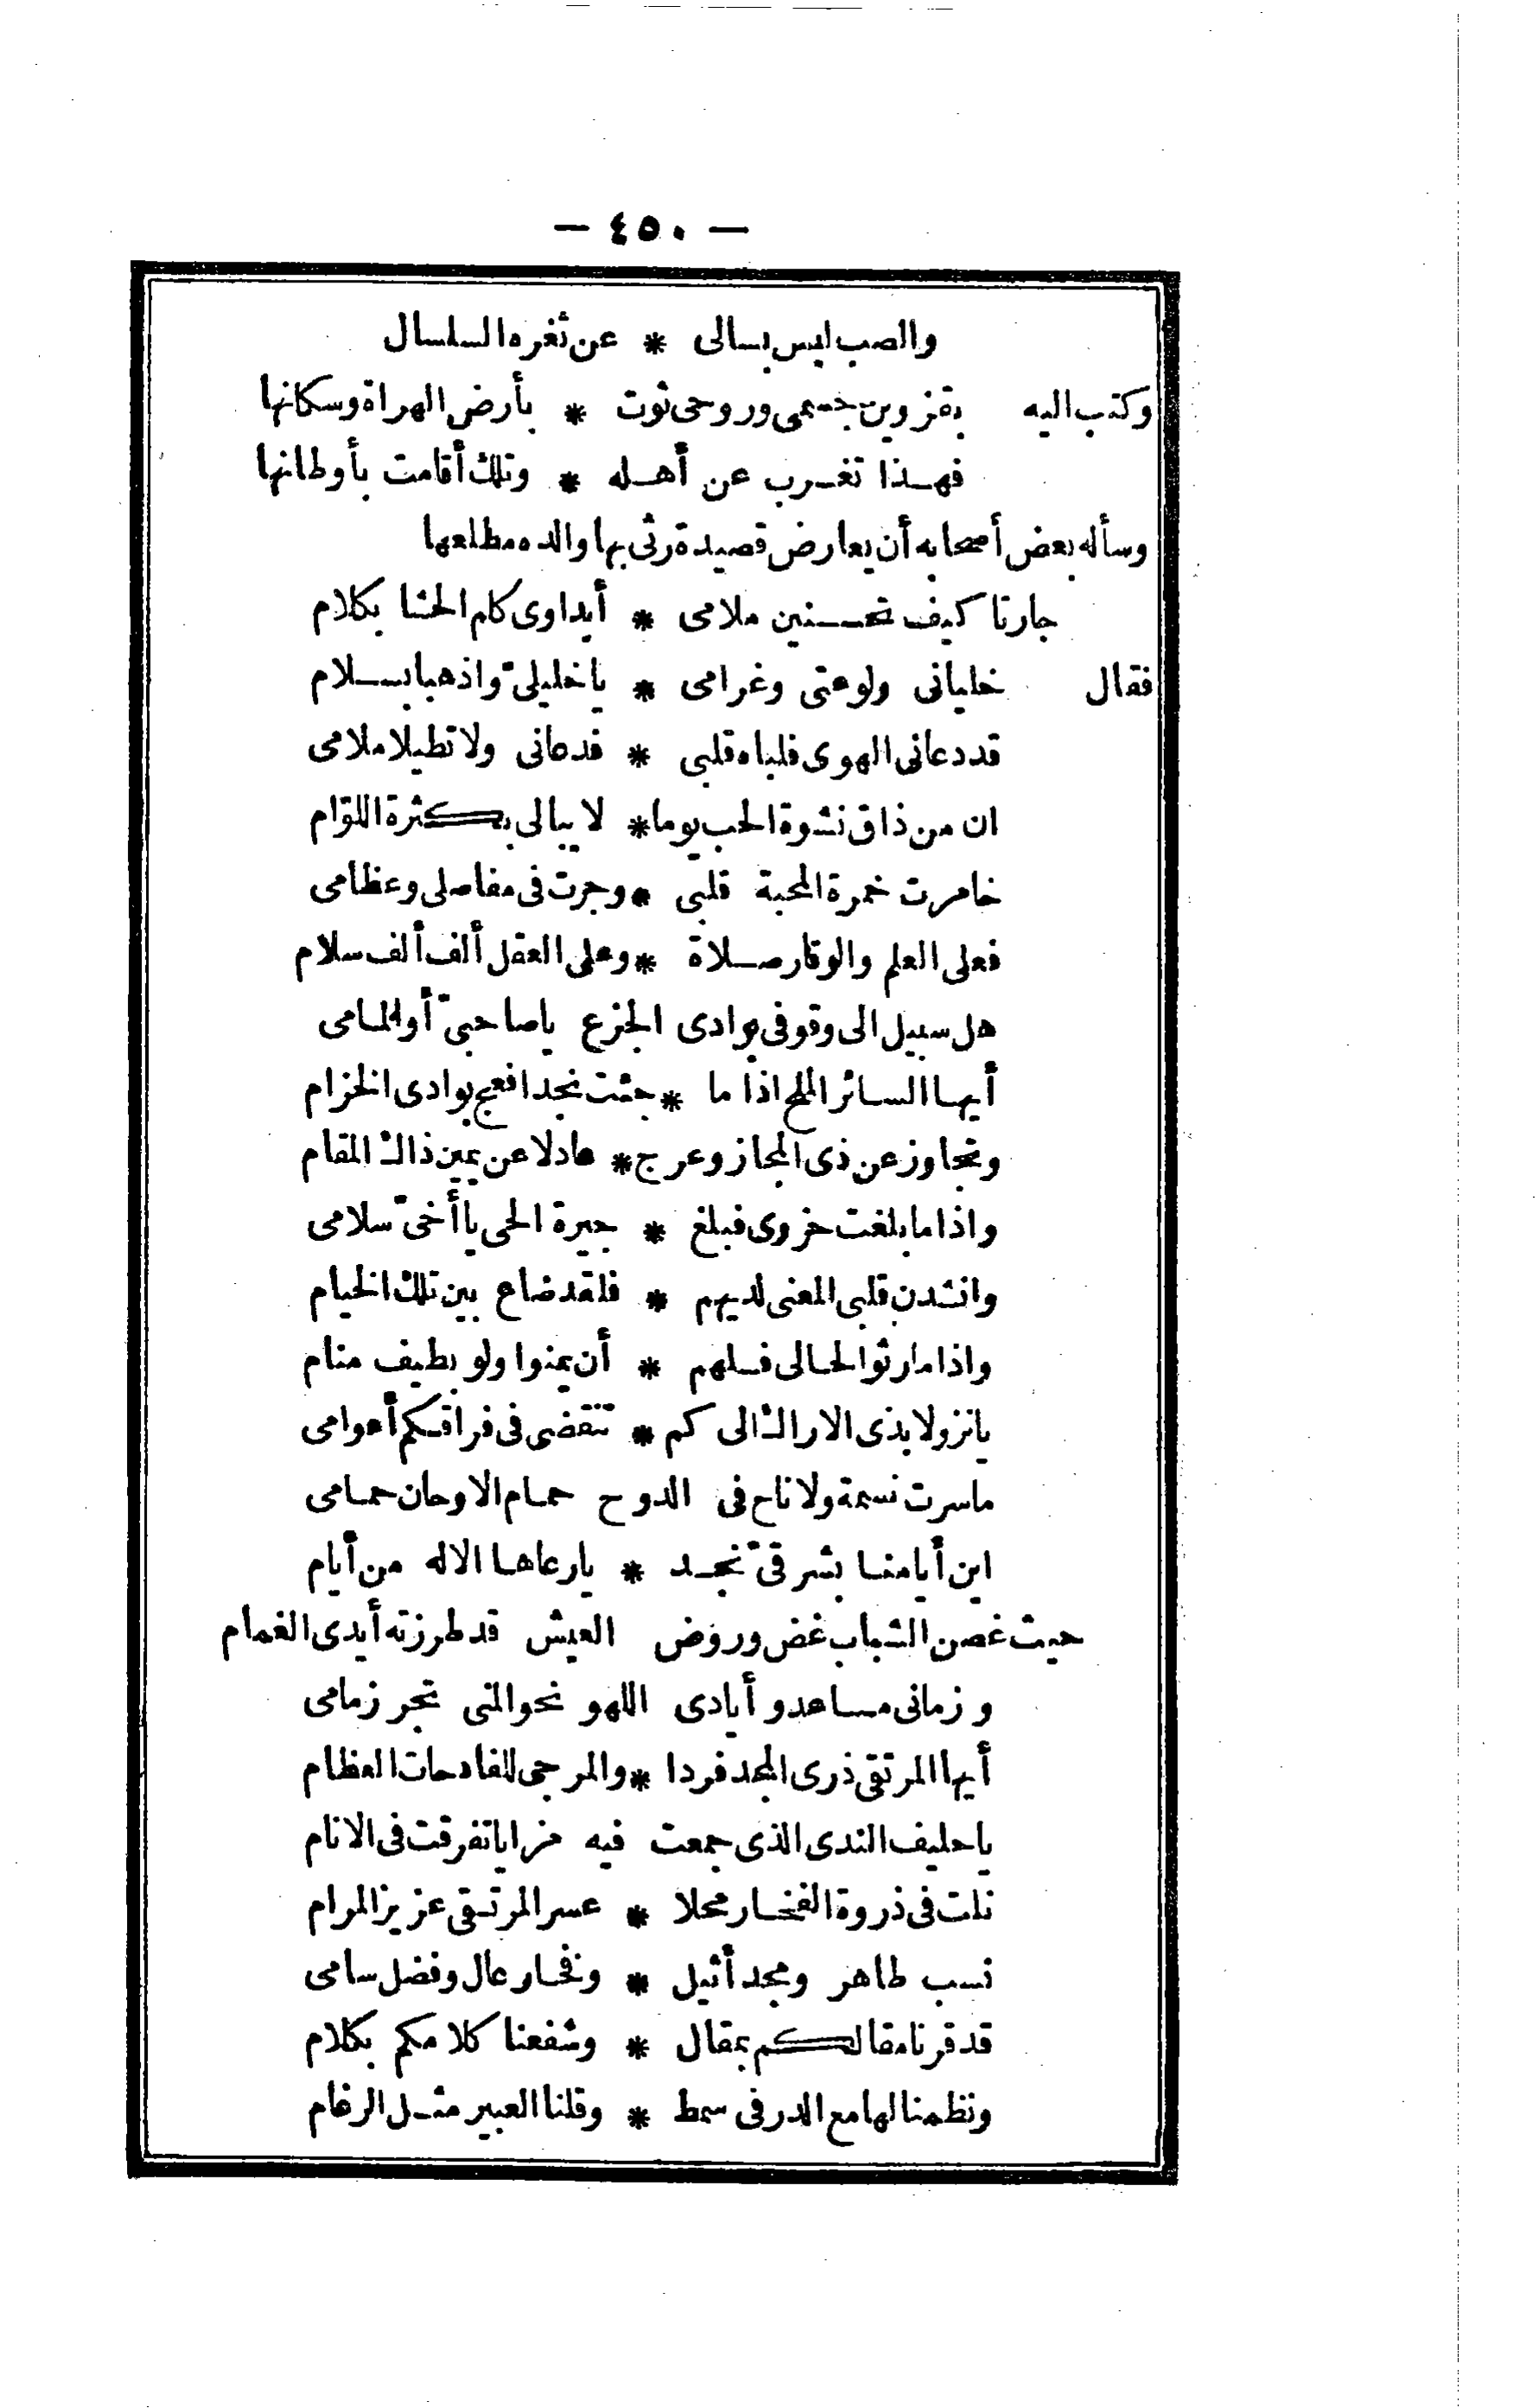 — ٤٥٠ —
والصب ليس بسالى * عن ثغره السلسال
وكتب اليه بقزوين جسمى وروحى ثوت * بأرض الهراة وسكانها
فهذا تغرب عن أهله * وتلك أقامت بأوطانها
وسأله بعض أصحابه أن يعارض قصيدة رثى بها والده مطلعها
جارتا كيف تحسنين ملامى * أيداوى كلم الحشا بكلام
فقال خليانى ولوعتى وغرامى * يا خليلىّ واذهبا بسلام
قد دعانى الهوى فلباه قلبى * فدعانى ولا تطيلا ملامى
ان من ذاق نشوة الحب يوما * لا يبالى بكثرة اللوّام
خامرت خمرة المحبة قلبى * وجرت فى مفاصلى وعظامى
فعلى العلم والوقار صلاة * وعلى العقل ألف ألف سلام
هل سبيل الى وقوفى بوادى الجزع يا صاحبىّ أو المامى
أيها السائر الملح اذا ما * جئت نجدا فعج بوادى الخزام
وتجاوز عن ذى المجاز وعرج * عادلا عن يمين ذاك المقام
واذا ما بلغت حزوى فبلغ * جيرة الحى يا أخىّ سلامى
وانشدن قلبى المعنى لديهم * فلقد ضاع بين تلك الخيام
واذا ما رثوا لحالى فسلهم * أن يمنوا ولو بطيف منام
يا نزولا بذى الاراك الى كم * تنقضى فى فراقكم أعوامى
ما سرت نسمة ولا ناح فى الدوح حمام الا وحان حمامى
اين أيامنا بشرقىّ نجد * يا رعاها الاله من أيام
حيث غصن الشباب غض وروض العيش قد طرزته أيدى الغمام
وزمانى مساعد وأيادى اللهو نحو المنى تجر زمامى
أيها المرتقى ذرى المجد فردا * والمرجى للفادحات العظام
يا حليف الندى الذى جمعت فيه مزايا تفرقت فى الانام
نلت فى ذروة الفخار محلا * عسر المرتقى عزيز المرام
نسب طاهر ومجد أثيل * وفخار عال وفضل سامى
قد قرنا مقالكم بمقال * وشفعنا كلامكم بكلام
ونظمنا لها مع الدر فى سمط * وقلنا العبير مثل الرغام